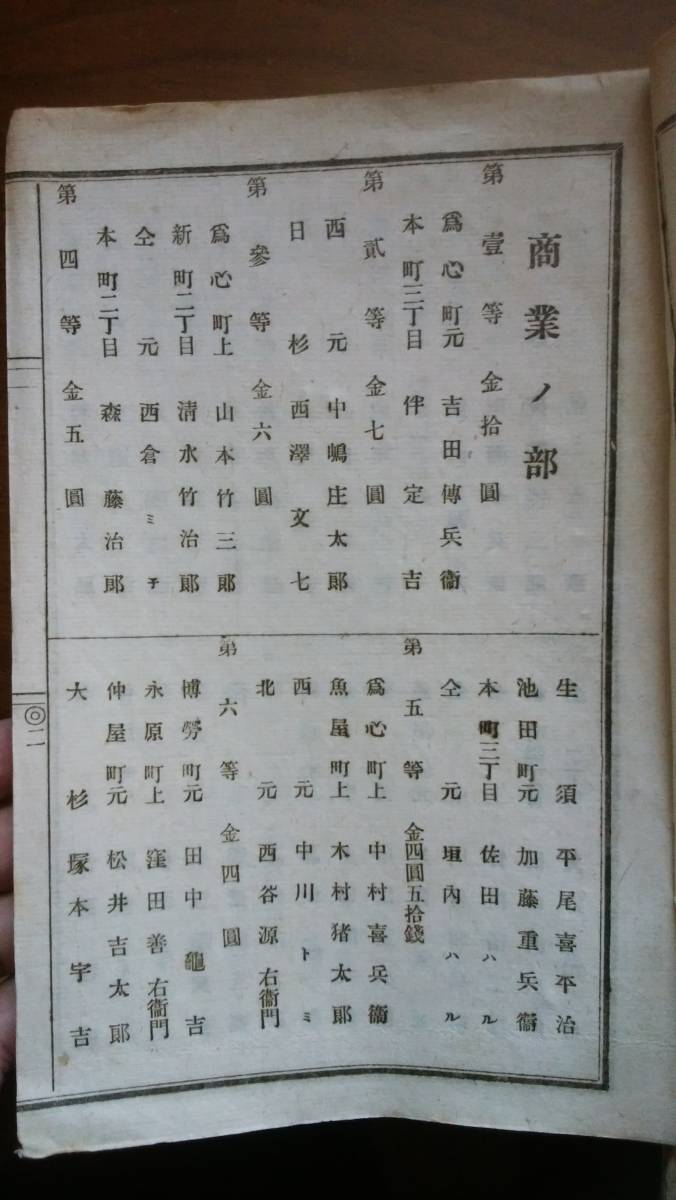 商業ノ部
第壹等 金拾圓
爲心町元 吉田傳兵衞
本町三丁目 伴定吉
第貳等 金七圓
西元 中嶋庄太郎
日杉 西澤文七
第參等 金六圓
爲心町上 山本竹三郎
新町二丁目 清水竹治郎
仝元 西倉ミチ
本町二丁目 森藤治郎
第四等 金五圓
生須 平尾喜平治
池田町元 加藤重兵衞
本町三丁目 佐田ハル
仝元 垣内ハル
第五等 金四圓五拾錢
爲心町上 中村喜兵衞
魚屋町上 木村猪太郎
西元 中川トミ
北元 西谷源右衞門
第六等 金四圓
博勞町元 田中龜吉
永原町上 窪田善右衞門
仲屋町元 松井吉太郎
大杉 塚本宇吉
◎二